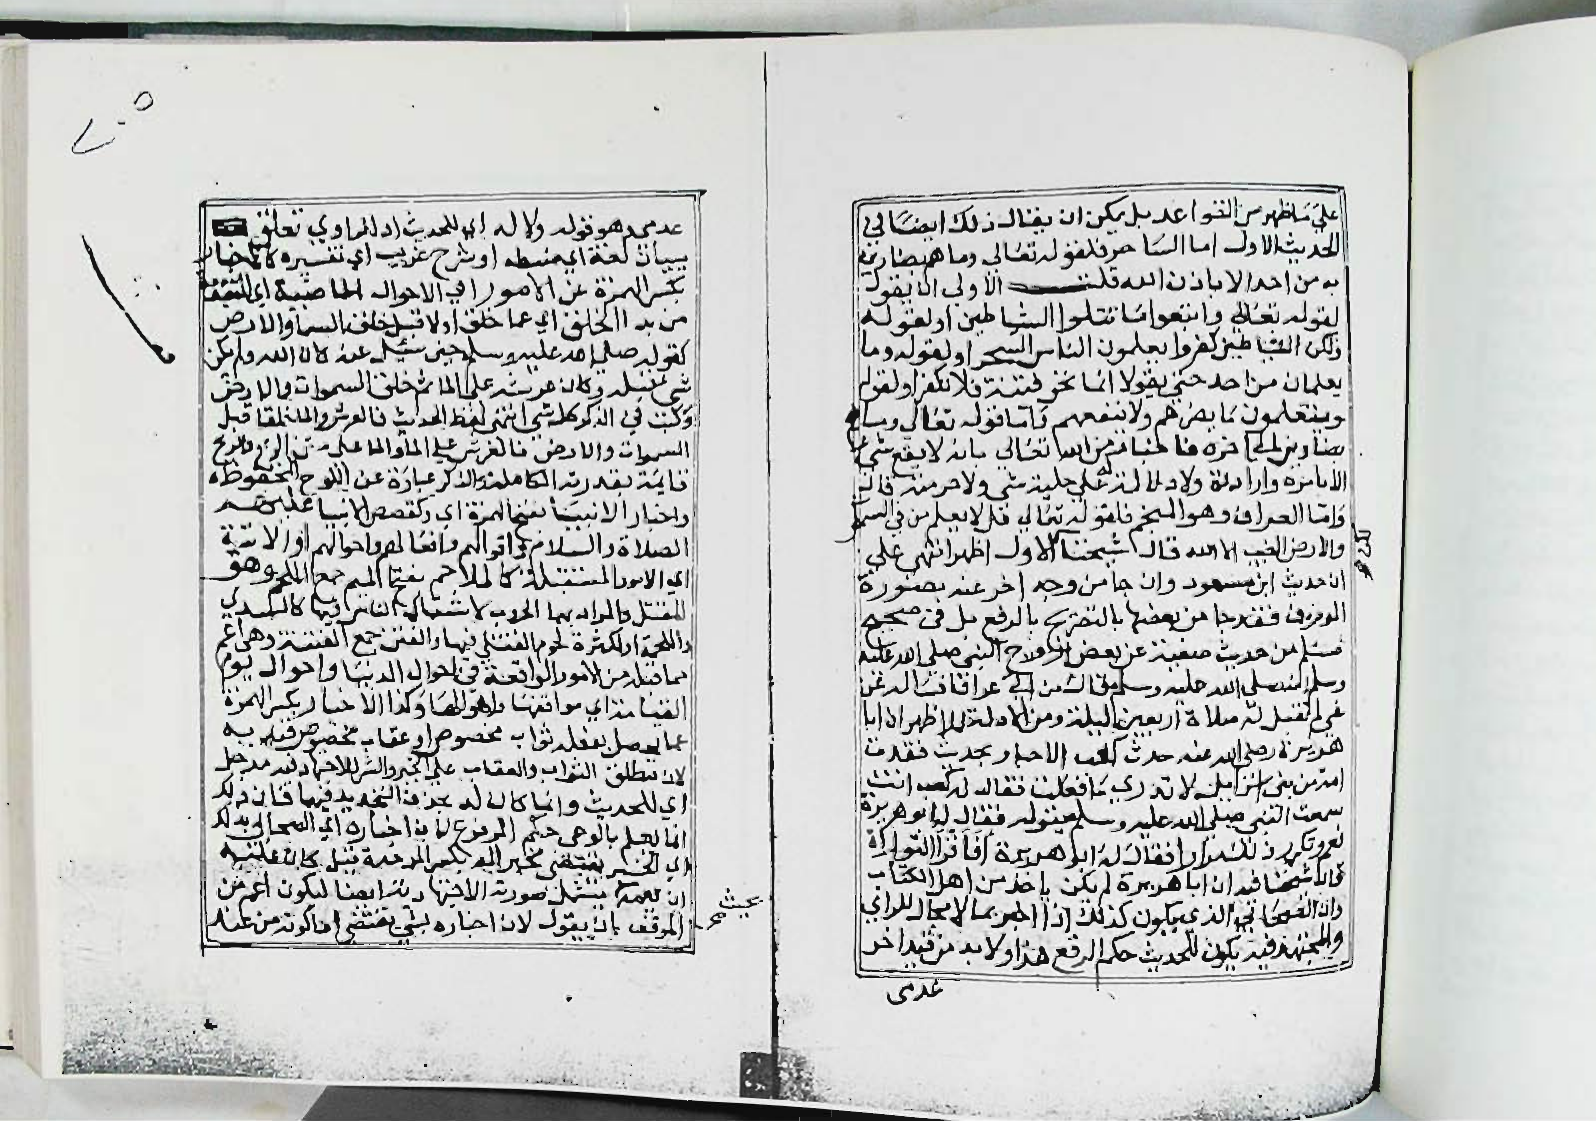 على ما ظهر من القواعد بل يمكن ان يقال ذلك ايضا في
الحديث الاول اما الساحر فلقوله تعالى وما هم بضارين
به من احد الا باذن الله قلت الأولى ان يقول
لقوله تعالى واتبعوا ما تتلوا الشياطين او لقوله
ولكن الشياطين كفروا يعلمون الناس السحر او لقوله وما
يعلمان من احد حتى يقولا انما نحن فتنة فلا تكفر او لقوله
ويتعلمون ما يضرهم ولا ينفعهم واما قوله تعالى وما هم
بضارين الى اخره فاخبار من الله تعالى بانه لا يقع شيء
الا بامره وارادته ولا دلالة له على حلية شي ولا حرمته قال
واما العراف وهو المنجم فلقوله تعالى قل لا يعلم من في السموات
والارض الغيب الا الله قال شيخنا الاول اظهر انتهى على
لكن
ان حديث ابن مسعود وان جا من وجه اخر عنه بصورة
الموقوف فقد جا من بعضها بالتصريح بالرفع بل في صحيح
مسلم من حديث صفية عن بعض ازواج النبي صلى الله عليه
وسلم انه صلى الله عليه وسلم قال من اتى عرافا فساله عن
شي لم تقبل له صلاة اربعين ليلة ومن الادلة للاظهر ان ابا
هريرة رضي الله عنه حدث كعب الاحبار بحديث فقدت
امة من بني اسرائيل لا تدري ما فعلت فقال له كعب انت
سمعت النبي صلى الله عليه وسلم يقوله فقال له ابو هريرة
نعم وتكرر ذلك مرارا فقال له ابو هريرة افاقرا التوراة
قال شيخنا فيه ان ابا هريرة لم يكن ياخذ من اهل الكتاب
وان الصحابي الذي يكون كذلك اذا اخبر بما لا مجال للراي
والاجتهاد فيه يكون للحديث حكم الرفع هذا ولا بد من قيد اخر
عدمى
٢٠٥
عدمى وهو قوله ولا له اي للحديث او للراوي تعلق
ببيان لغة اي ضبطه او شرح غريب اي تفسيره كالاخبار
بكسر الهمزة عن الامور اي الاحوال الماضية اي المتقدمة
من بدا الخلق اي عما خلق اولا قبل خلق السما والارض
كقوله صلى الله عليه وسلم حين سئل عنه كان الله ولم يكن
شي قبله وكان عرشه على الما ثم خلق السموات والارض
وكتب في الذكر كل شي انتهى لفظ الحديث فالعرش والما خلقا قبل
السموات والارض فالعرش على الما والما على متن الريح والريح
قايمة بقدرته الكاملة والذكر عبارة عن اللوح المحفوظ
واخبار الانبيا بفتح الهمزة اي وكقصص الانبيا عليهم
الصلاة والسلام واقوالهم وافعالهم واحوالهم او الاتية
اي الامور المستقبلة كالملاحم بفتح الميم جمع الملحمة وهو
المقتل والمراد بها الحروب لاشتباك الناس فيها كالسدى
واللحمة او لكثرة لحوم القتلى فيها والفتن جمع الفتنة وهي اعم
مما قبله من الامور الواقعة في احوال الدنيا واحوال يوم
القيامة اي مواقفها واهوالها وكذا الاخبار بكسر الهمزة
عما يحصل بفعله ثواب مخصوص او عقاب مخصوص قيد به
لان مطلق الثواب والعقاب على الخير والشر للاجتهاد فيه مدخل
اي للحديث وانما كان له
انما يعلم بالوحي حكم المرفوع لان اخباره اي الصحابي بذلك
اي الخبر يقتضي مخبرا له بكسر الموحدة قيل كان عليه
ان يعممه بحيث يشمل صورة الاجتهادية ايضا ليكون اعم من
الموقف بان يقول لان اخباره بشي يقتضي اما كونه من عند